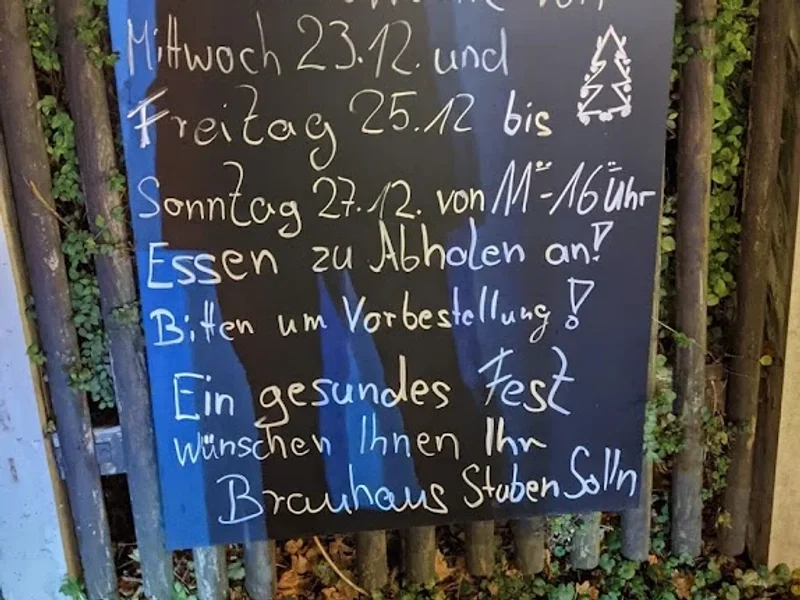 Mittwoch 23.12. und
Freitag 25.12 bis
Sonntag 27.12. von 11-16 Uhr
Essen zu Abholen an!
Bitten um Vorbestellung!
Ein gesundes Fest
wünschen Ihnen Ihr
Brauhaus Stuben Solln